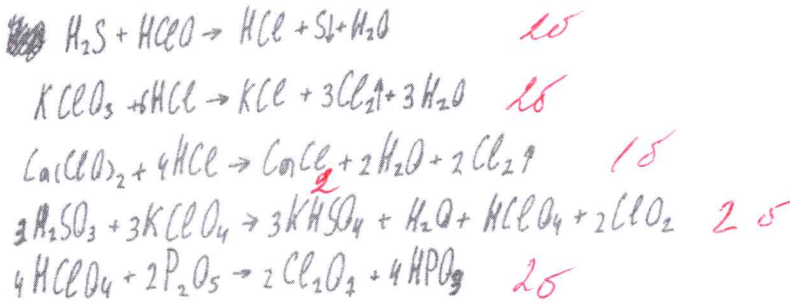 H₂S + HClO → HCl + S↓ + H₂O 2б
KClO₃ + 6HCl → KCl + 3Cl₂↑ + 3H₂O 2б
Ca(ClO)₂ + 4HCl → CaCl₂ + 2H₂O + 2Cl₂↑ 1б
3H₂SO₃ + 3KClO₄ → 3KHSO₄ + H₂O + HClO₄ + 2ClO₂ 2б
4HClO₄ + 2P₂O₅ → 2Cl₂O₇ + 4HPO₃ 2б